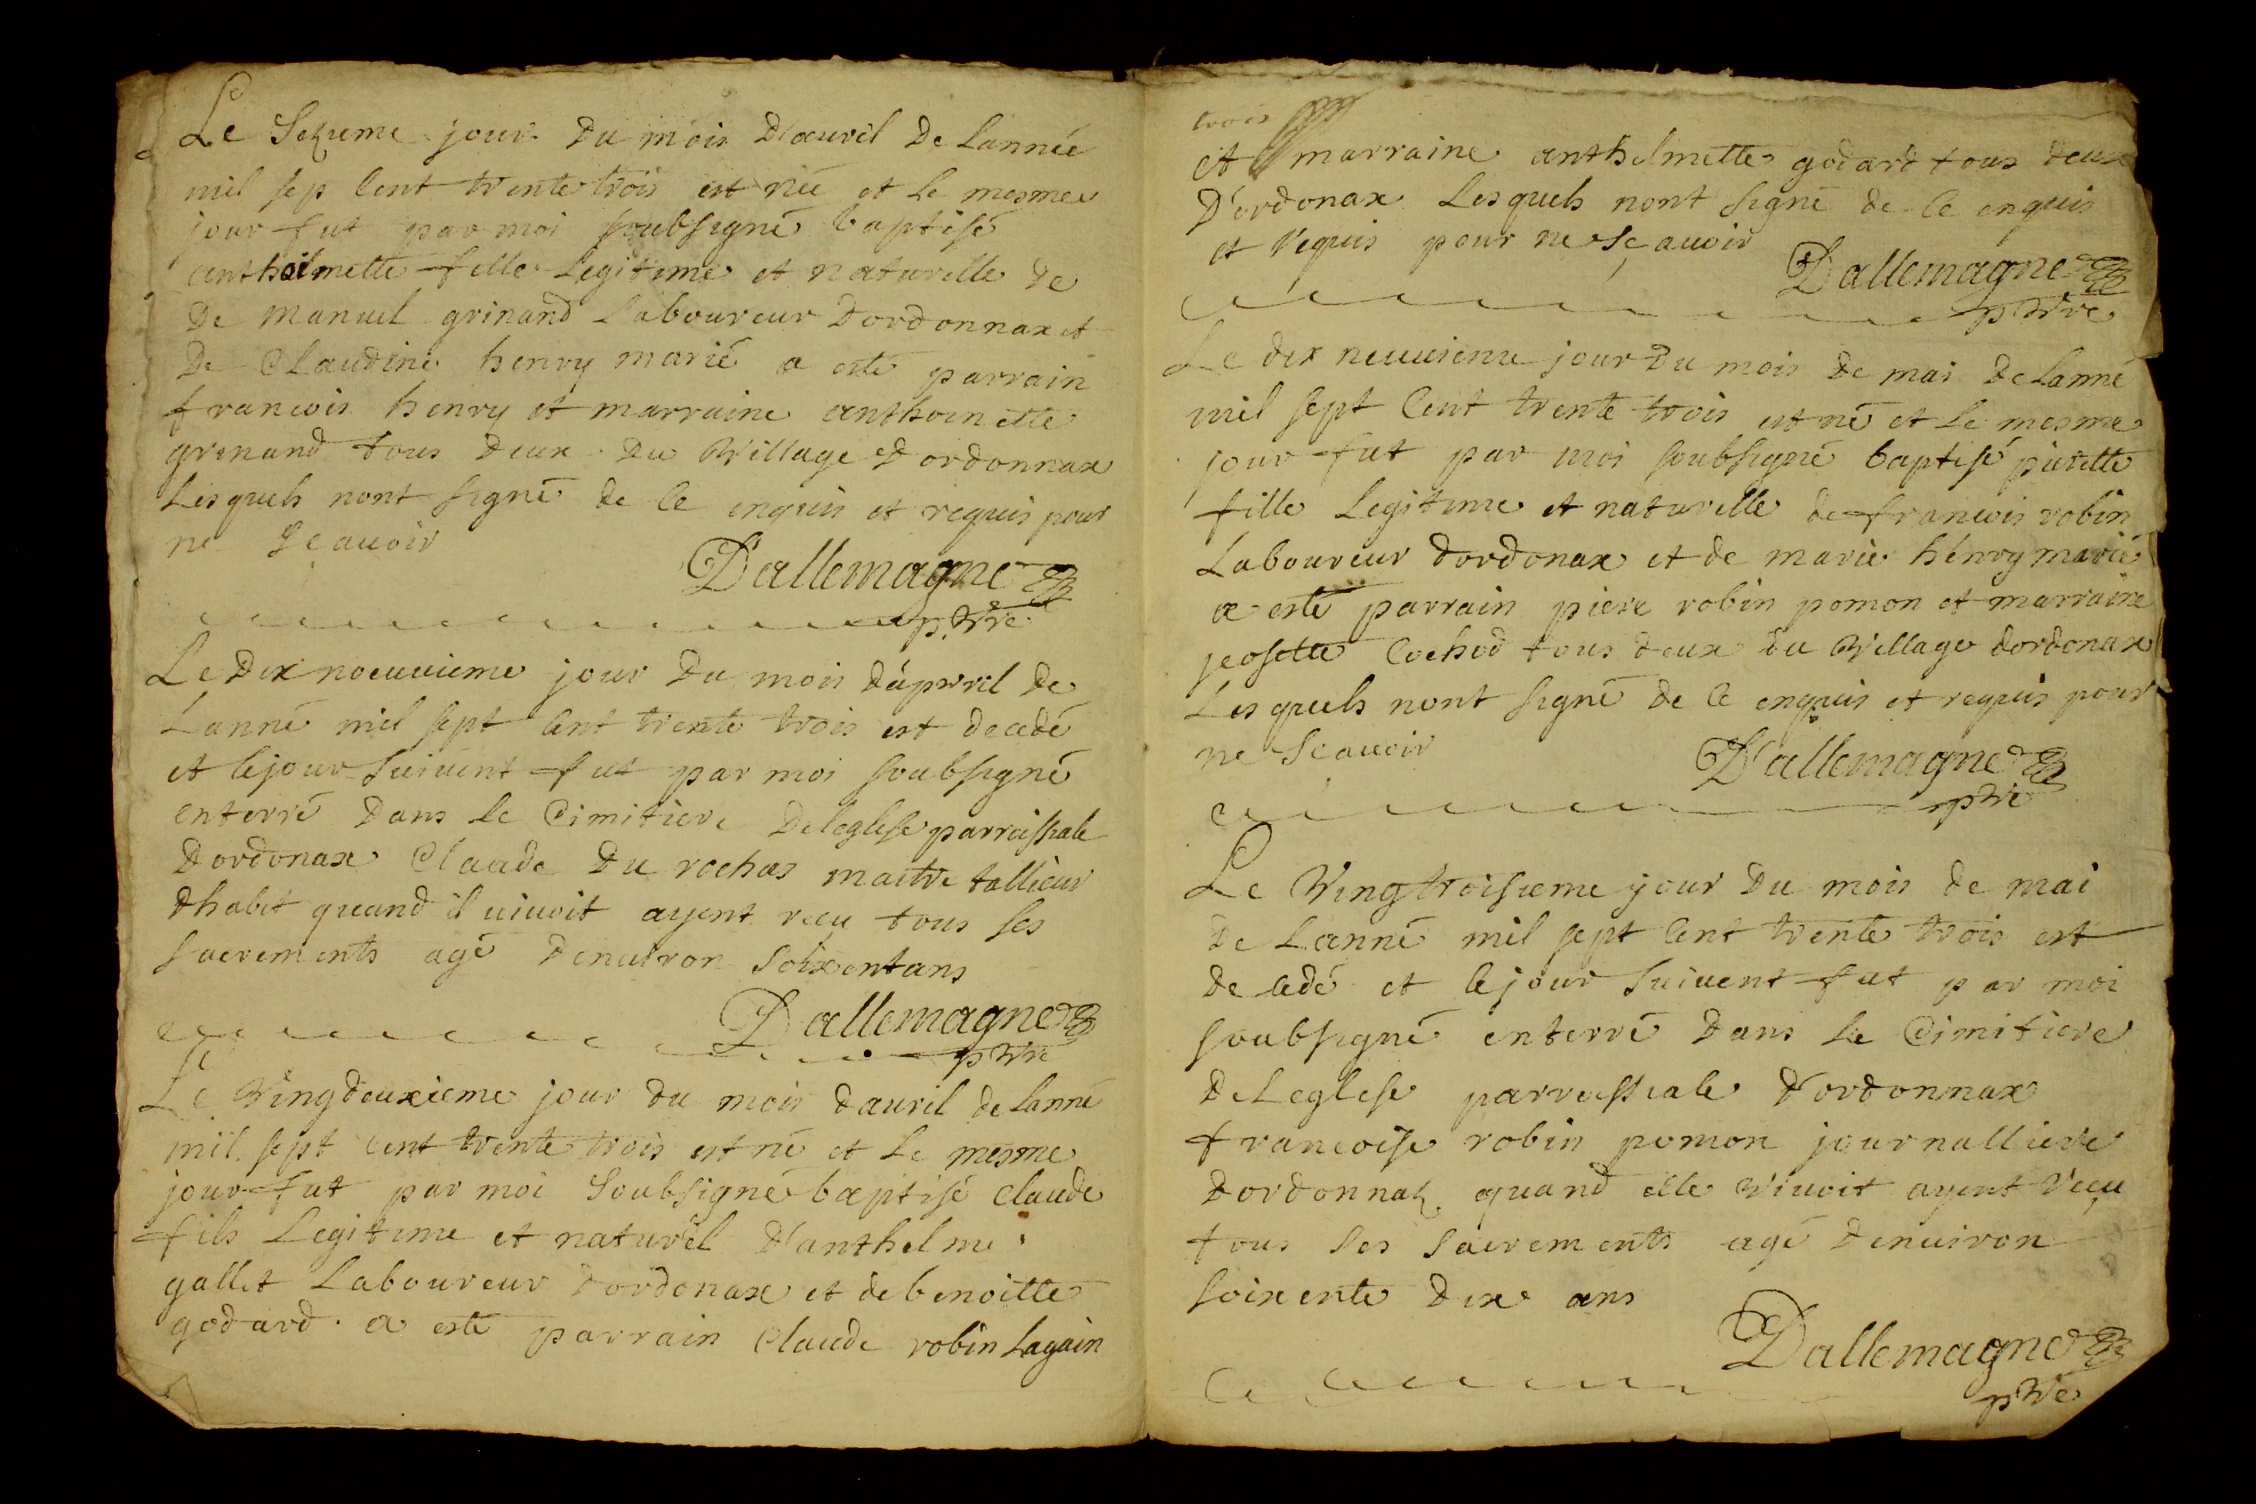 Le Sezieme jour du mois d'auril de lannée
mil sep cent trente trois est née et le mesme
jour fut par moi soubsigné baptisé
anthelmette fille legitime et naturelle de
de manuel grinand laboureur dordonnax et
de Claudine henry marié a esté parrain
francois henry et marraine anthoinette
grinand tous deux du village dordonnax
lesquels nont signé de ce enquis et requis pour
ne sçauoir
D'allemagne
ptre
Le dix noeuuieme jour du mois d'apvril de
lanné mil sept cent trente trois est decedé
et lejour suiuent fut par moi soubsigné
enterré dans le Cimitiere deleglise parroissiale
dordonax Claude du rochas maitre tallieur
dhabit quand il uiuoit ayent recu tous ses
sacrements agé denuiron soixent ans
Dallemagne
ptre
Le vingdeuxieme jour du mois dauril de lanné
mil sept cent trente trois est né et le mesme
jour fut par moi soubsigné baptisé claude
fils legitime et naturel d'anthelme
gallet laboureur dordonax et de benoitte
godard. a esté parrain Claude robin lagain
trois
et marraine anthelmette godard tous deux
d'ordonax lesquels nont signé de ce enquis
et requis pour ne sçauoir
Dallemagne
ptre
Le dix neuuieme jour du mois de mai de lanné
mil sept cent trente trois est né et le mesme
jour fut par moi soubsigné baptisé pierette
fille legitime et naturelle de francois robin
laboureur dordonax et de marie henry marié
a esté parrain piere robin pomon et marraine
jeosette Cochod tous deux du village dordonax
lesquels nont signé de ce enquis et requis pour
ne scauoir
D'allemagne
ptre
Le vingtroisieme jour du mois de mai
de lanné mil sept cent trente trois est
decedé et lejour suiuent fut par moi
soubsigné enterré dans le Cimitiere
deleglise parroissiale d'ordonnax
francoise robin pomon journalliere
dordonnax quand elle viuoit ayent reçu
tous ses sacrements agé denuiron
soixente dix ans
Dallemagne
ptre